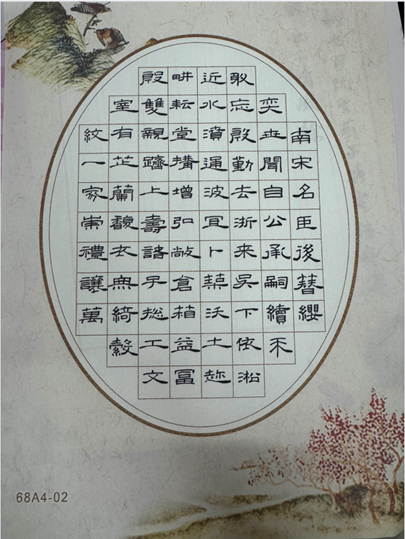 南宋名臣後簪纓
奕世聞自公承嗣續不
敢忘殷勤去浙来吴下依淞
近水濱通波宜卜築沃土趂
畊耘堂構增弘敞倉箱益冨
殷雙親躋上壽諸子総工文
室有芷蘭馥衣無綺縠
紋一家崇禮讓萬
68A4-02